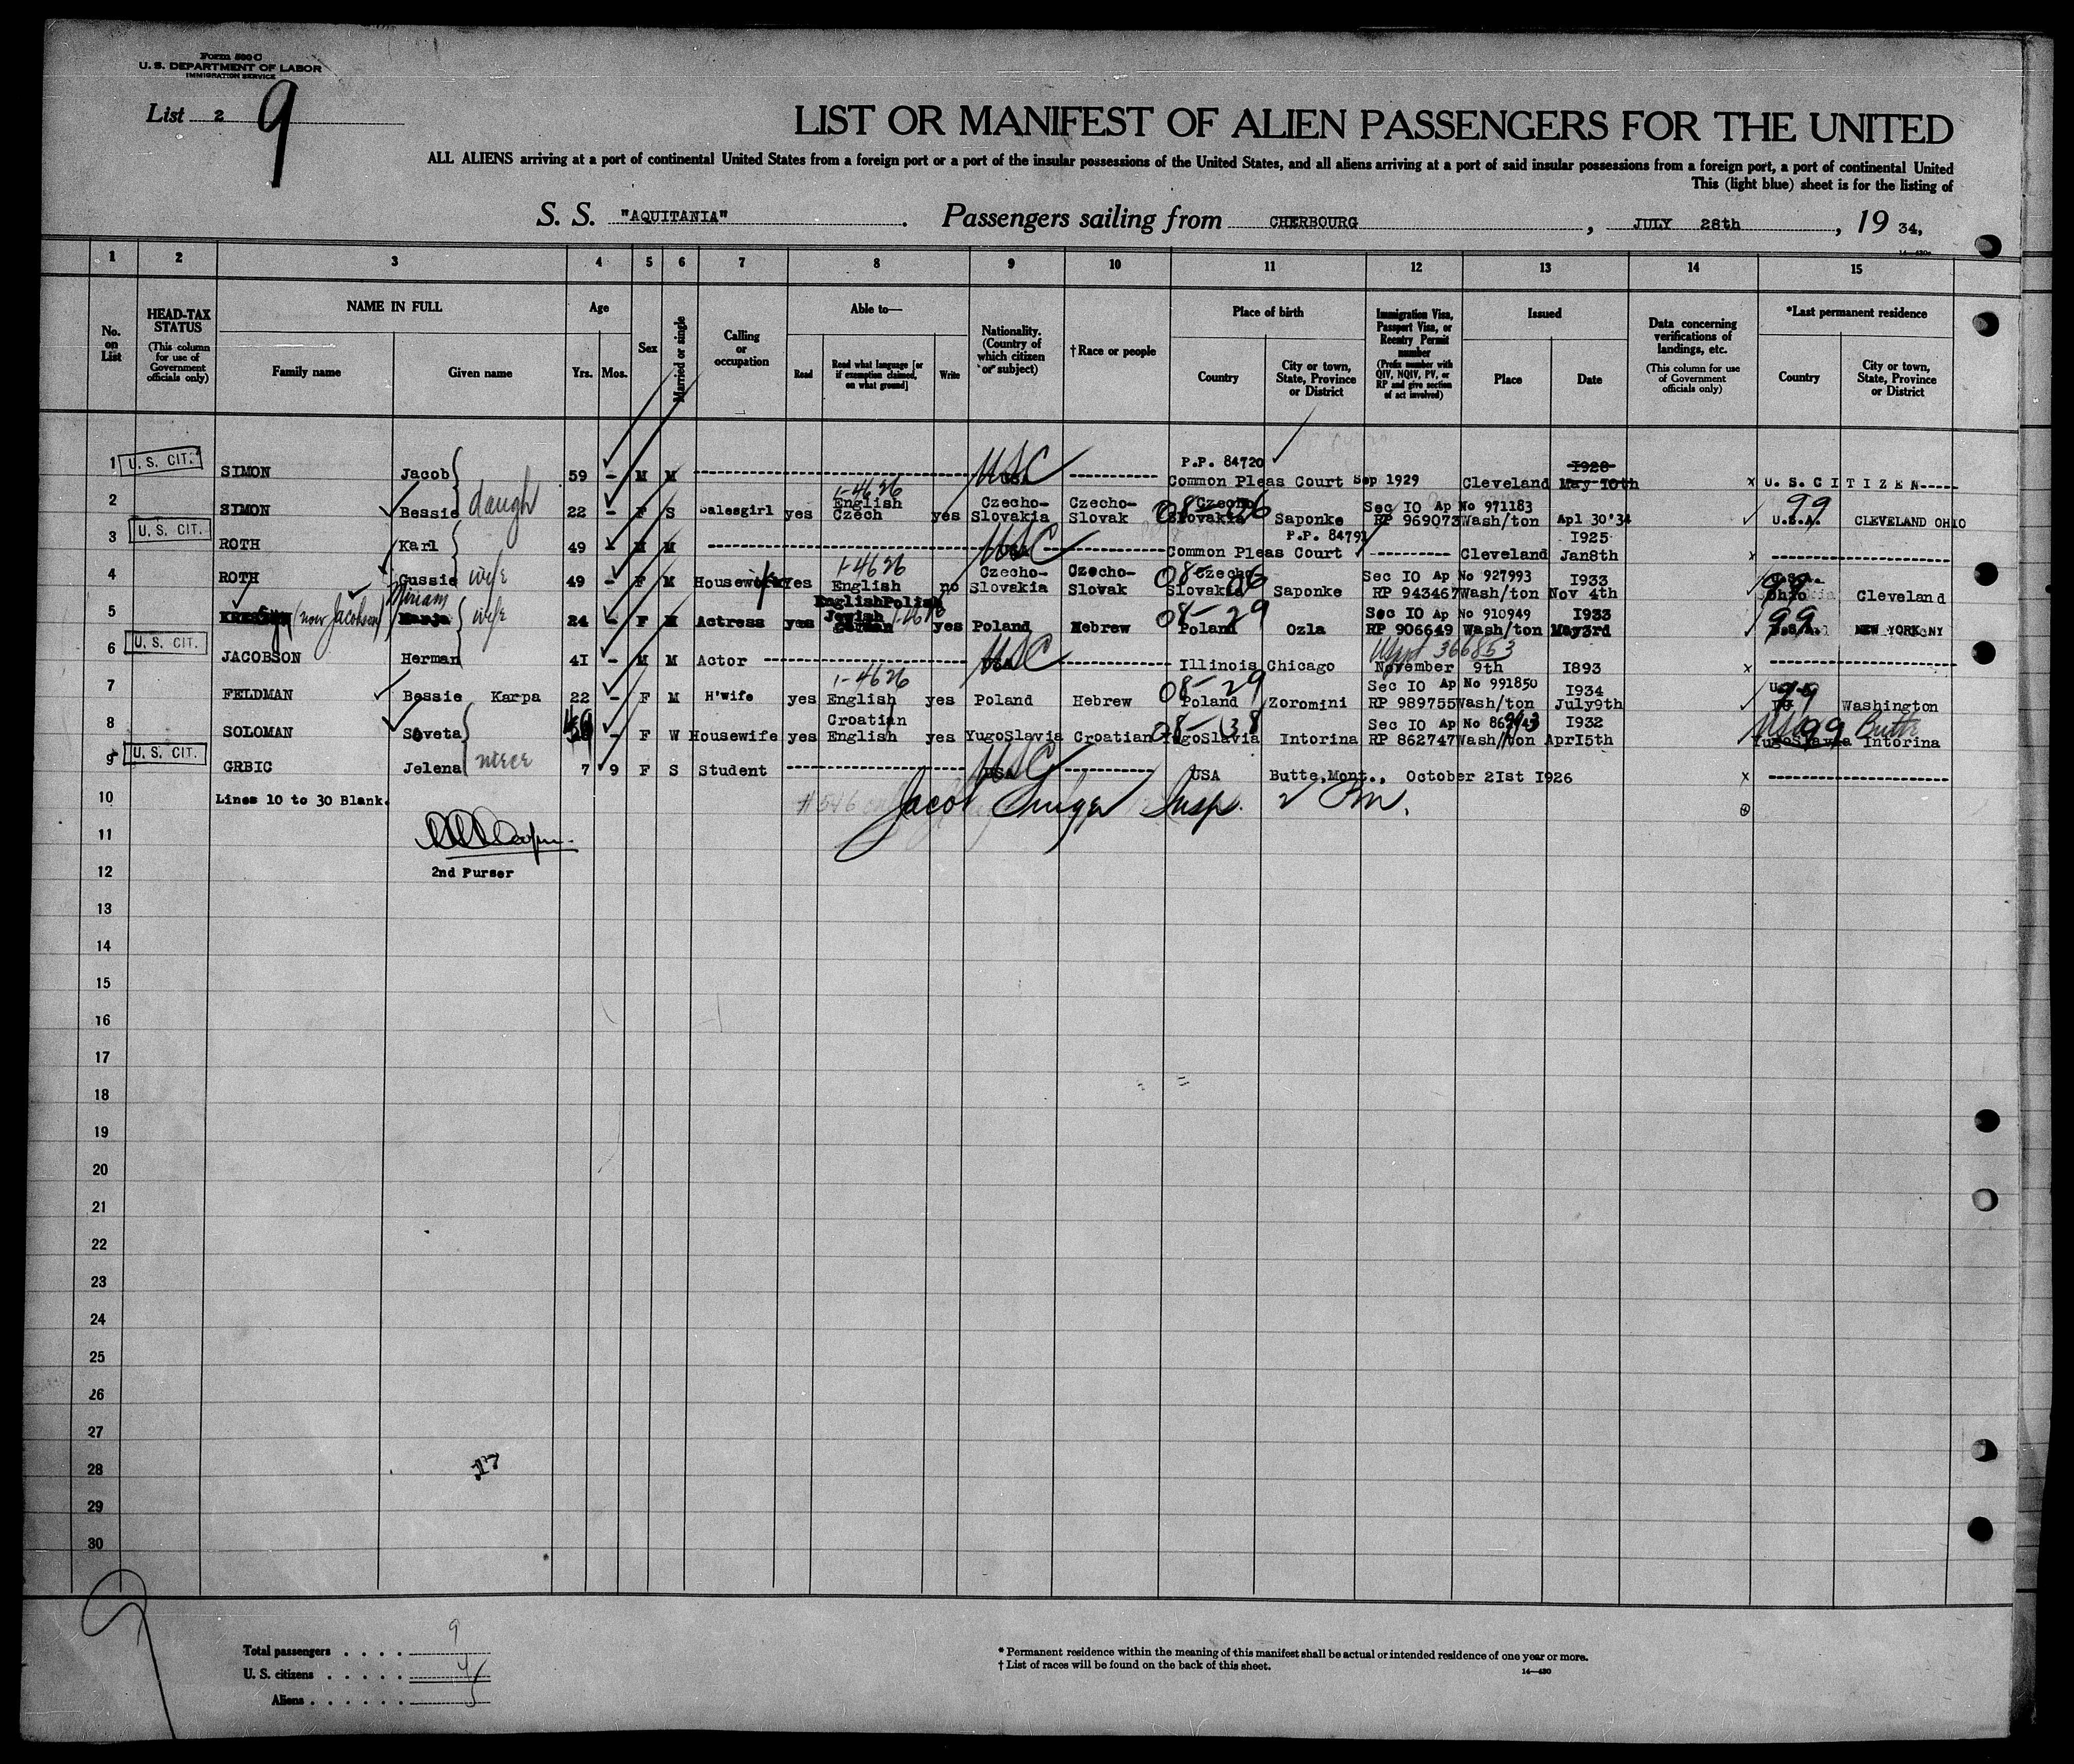 Form 500 C
U. S. DEPARTMENT OF LABOR
IMMIGRATION SERVICE
List 2 9
LIST OR MANIFEST OF ALIEN PASSENGERS FOR THE UNITED
ALL ALIENS arriving at a port of continental United States from a foreign port or a port of the insular possessions of the United States, and all aliens arriving at a port of said insular possessions from a foreign port, a port of continental United
This (light blue) sheet is for the listing of
S. S. "AQUITANIA" . Passengers sailing from CHERBOURG , JULY 28th , 19 34,
1 2 3 4 5 6 7 8 9 10 11 12 13 14 15
No. on List
HEAD-TAX STATUS (This column for use of Government officials only)
NAME IN FULL Family name Given name
Age Yrs. Mos.
Sex
Married or single
Calling or occupation
Able to— Read Read what language [or if exemption claimed, on what ground] Write
Nationality. (Country of which citizen or subject)
†Race or people
Place of birth Country City or town, State, Province or District
Immigration Visa, Passport Visa, or Reentry Permit number (Prefix number with QIV, NQIV, PV, or RP and give section of act involved)
Issued Place Date
Data concerning verifications of landings, etc. (This column for use of Government officials only)
*Last permanent residence Country City or town, State, Province or District
1 U. S. CIT. SIMON Jacob 59 - M M USC P.P. 84720 Common Pleas Court Sep 1929 Cleveland 1928 May 10th x U. S. C I T I Z E N
2 SIMON Bessie daugh 22 - F S Salesgirl yes 1-4626 English Czech yes Czecho-Slovakia Czecho-Slovak 08-06 Czecho Slovakia Saponke Sec IO Ap No 971183 RP 969073 Wash/ton Apl 30'34 99 U.S.A. CLEVELAND OHIO
3 U. S. CIT. ROTH Karl 49 - M M USC P.P. 84791 Common Pleas Court Cleveland I925 Jan8th x
4 ROTH Gussie wife 49 - F M Housework yes 1-4626 English no Czecho-Slovakia Czecho-Slovak 08-06 Czecho Slovakia Saponke Sec IO Ap No 927993 RP 943467 Wash/ton I933 Nov 4th 99 Ohio Cleveland
5 (now Jacobson) Miriam Manja wife 24 - F M Actress yes English Polish Jewish German yes Poland Hebrew 08-29 Poland Ozla Sec IO Ap No 910949 RP 906649 Wash/ton I933 May3rd 99 NEW YORK NY
6 U. S. CIT. JACOBSON Herman 4I - M M Actor USC Illinois Chicago 366853 November 9th I893 x
7 FELDMAN Bessie Karpa 22 - F M H'wife yes 1-4626 English yes Poland Hebrew 08-29 Poland Zoromini Sec IO Ap No 991850 RP 989755 Wash/ton I934 July9th 99 Washington
8 SOLOMAN Soveta - F W Housewife yes Croatian English yes YugoSlavia Croatian 08-38 YugoSlavia Intorina Sec IO Ap No RP 862747 Wash/ton I932 AprI5th 99 Butte YugoSlavia Intorina
9 U. S. CIT. GRBIC Jelena niece 7 9 F S Student USC USA Butte,Mont., October 2Ist I926 x
10 Lines 10 to 30 Blank. Jacob Insp.
11
12 2nd Purser
13
14
15
16
17
18
19
20
21
22
23
24
25
26
27
28 17
29
30
Total passengers . . . . 9
U. S. citizens . . . . . 4
Aliens . . . . . . 5
* Permanent residence within the meaning of this manifest shall be actual or intended residence of one year or more.
† List of races will be found on the back of this sheet. 14—430